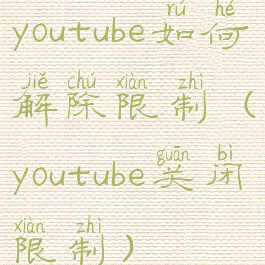 rú hé
youtube如何
jiě chú xiàn zhì
解除限制（
guān bì
youtube关闭
xiàn zhì
限制）